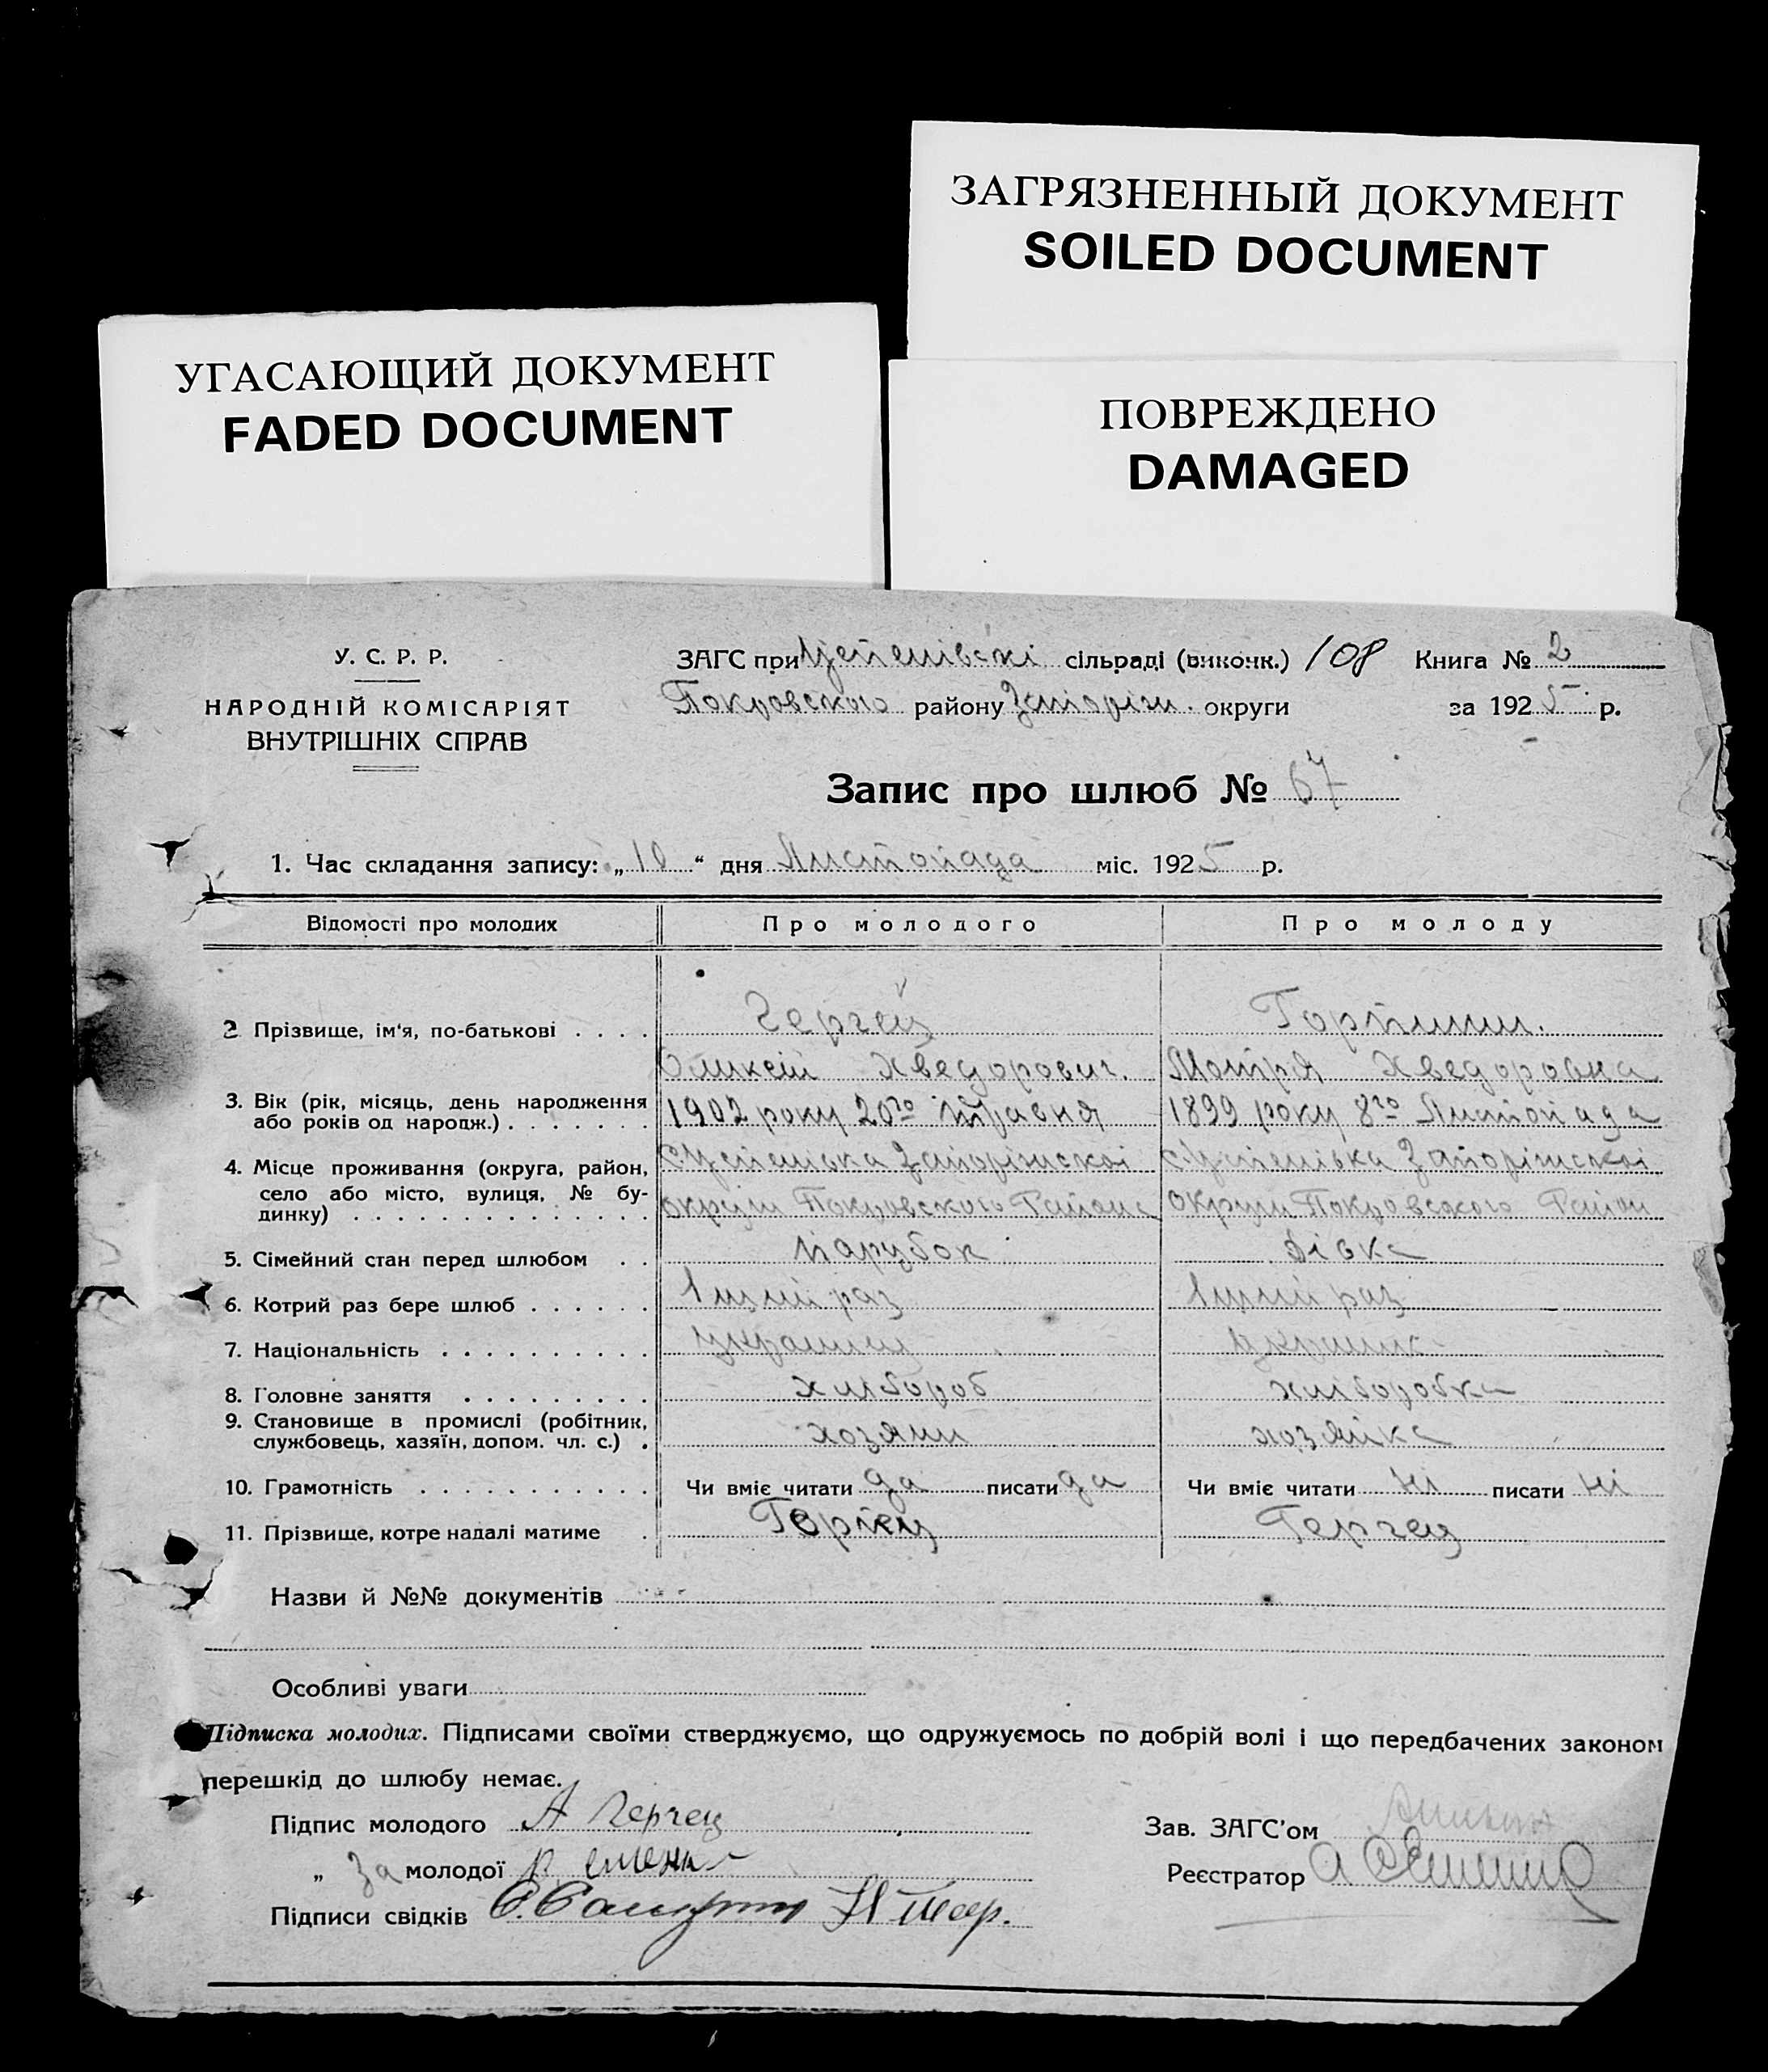 ЗАГРЯЗНЕННЫЙ ДОКУМЕНТ
SOILED DOCUMENT
УГАСАЮЩИЙ ДОКУМЕНТ
FADED DOCUMENT
ПОВРЕЖДЕНО
DAMAGED
У. С. Р. Р.
НАРОДНІЙ КОМІСАРІЯТ
ВНУТРІШНІХ СПРАВ
ЗАГС при сільраді (виконк.) 108 Книга № 2
Покровского району Запоріж. округи за 1925 р.
Запис про шлюб № 67
1. Час складання запису: „10“ дня Листопада міс. 1925 р.
Відомості про молодих Про молодого Про молоду
2 Прізвище, ім'я, по-батькові . . . . Гергец
Оликсій Хведорович. Мотря Хведоровна
3. Вік (рік, місяць, день народження
або років од народж.) . . . . . . . 1902 року 20го травня 1899 року 8го Листопада
4. Місце проживання (округа, район,
село або місто, вулиця, № бу-
динку) . . . . . . . . . . . . . . округи Покровского Району округи Покровского Району
5. Сімейний стан перед шлюбом . . Парубок Дівка
6. Котрий раз бере шлюб . . . . . . раз раз
7. Національність . . . . . . . . . .
8. Головне заняття . . . . . . . . . хлібороб хліборобка
9. Становище в промислі (робітник,
службовець, хазяїн, допом. чл. с.) . хозяин хозяйка
10. Грамотність . . . . . . . . . . . Чи вміє читати да писати да Чи вміє читати ні писати ні
11. Прізвище, котре надалі матиме . Гергец
Назви й №№ документів
Особливі уваги
Підписка молодих. Підписами своїми стверджуємо, що одружуємось по добрій волі і що передбачених законом
перешкід до шлюбу немає.
Підпис молодого А Гергец Зав. ЗАГС'ом
„ За молодої Реєстратор
Підписи свідків